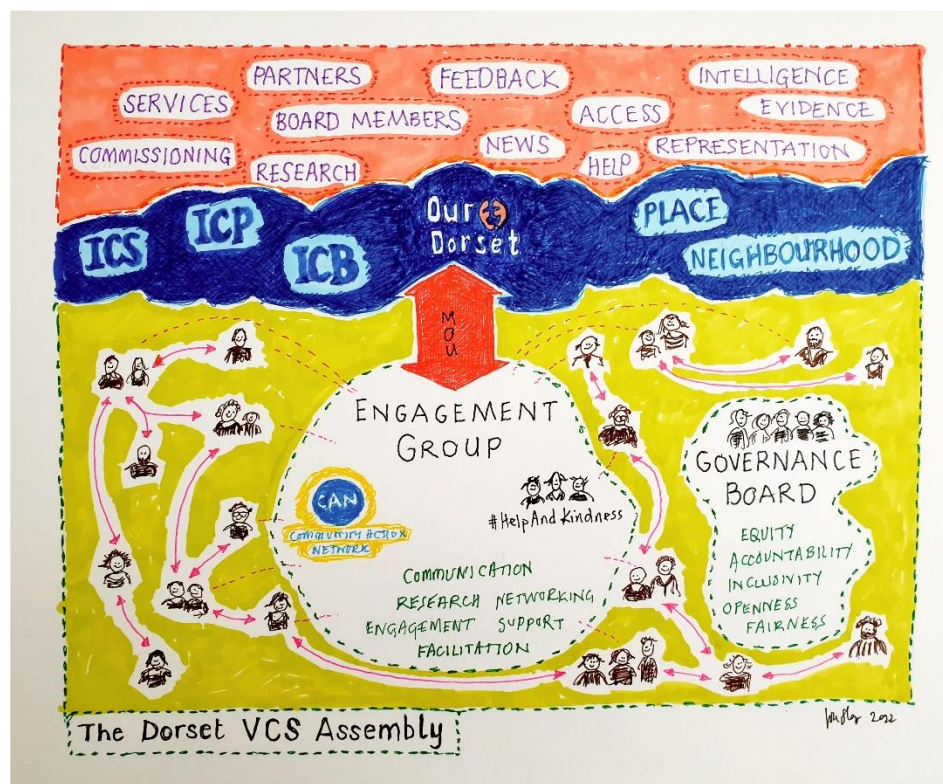 PARTNERS
FEEDBACK
INTELLIGENCE
SERVICES
BOARD MEMBERS
ACCESS
EVIDENCE
COMMISSIONING
RESEARCH
NEWS
HELP
REPRESENTATION
ICS
ICP
ICB
Our
Dorset
PLACE
NEIGHBOURHOOD
MOU
ENGAGEMENT
GROUP
CAN
COMMUNITY ACTION
NETWORK
#HelpAndKindness
COMMUNICATION
RESEARCH NETWORKING
ENGAGEMENT SUPPORT
FACILITATION
GOVERNANCE
BOARD
EQUITY
ACCOUNTABILITY
INCLUSIVITY
OPENNESS
FAIRNESS
The Dorset VCS Assembly
2022